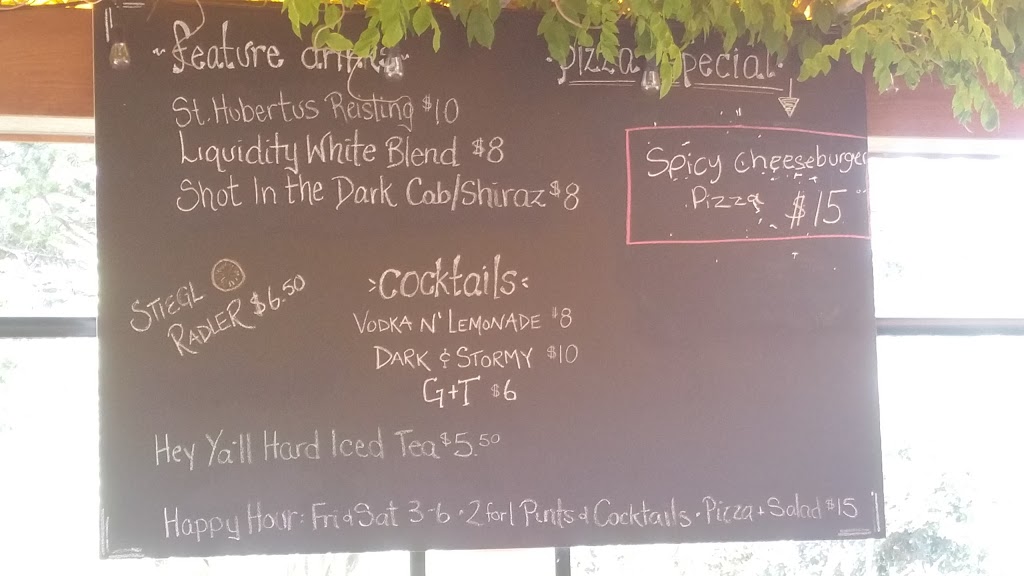 ~ feature drinks
St. Hubertus Reisting $10
Liquidity White Blend $8
Shot In the Dark Cab/Shiraz $8
Pizza Special
Spicy Cheeseburger
Pizza $15
STIEGL
RADLER $6.50
>Cocktails<
VODKA N' LEMONADE $8
DARK & STORMY $10
G+T $6
Hey Ya'll Hard Iced Tea $5.50
Happy Hour: Fri & Sat 3-6 · 2 for 1 Pints & Cocktails · Pizza + Salad $15